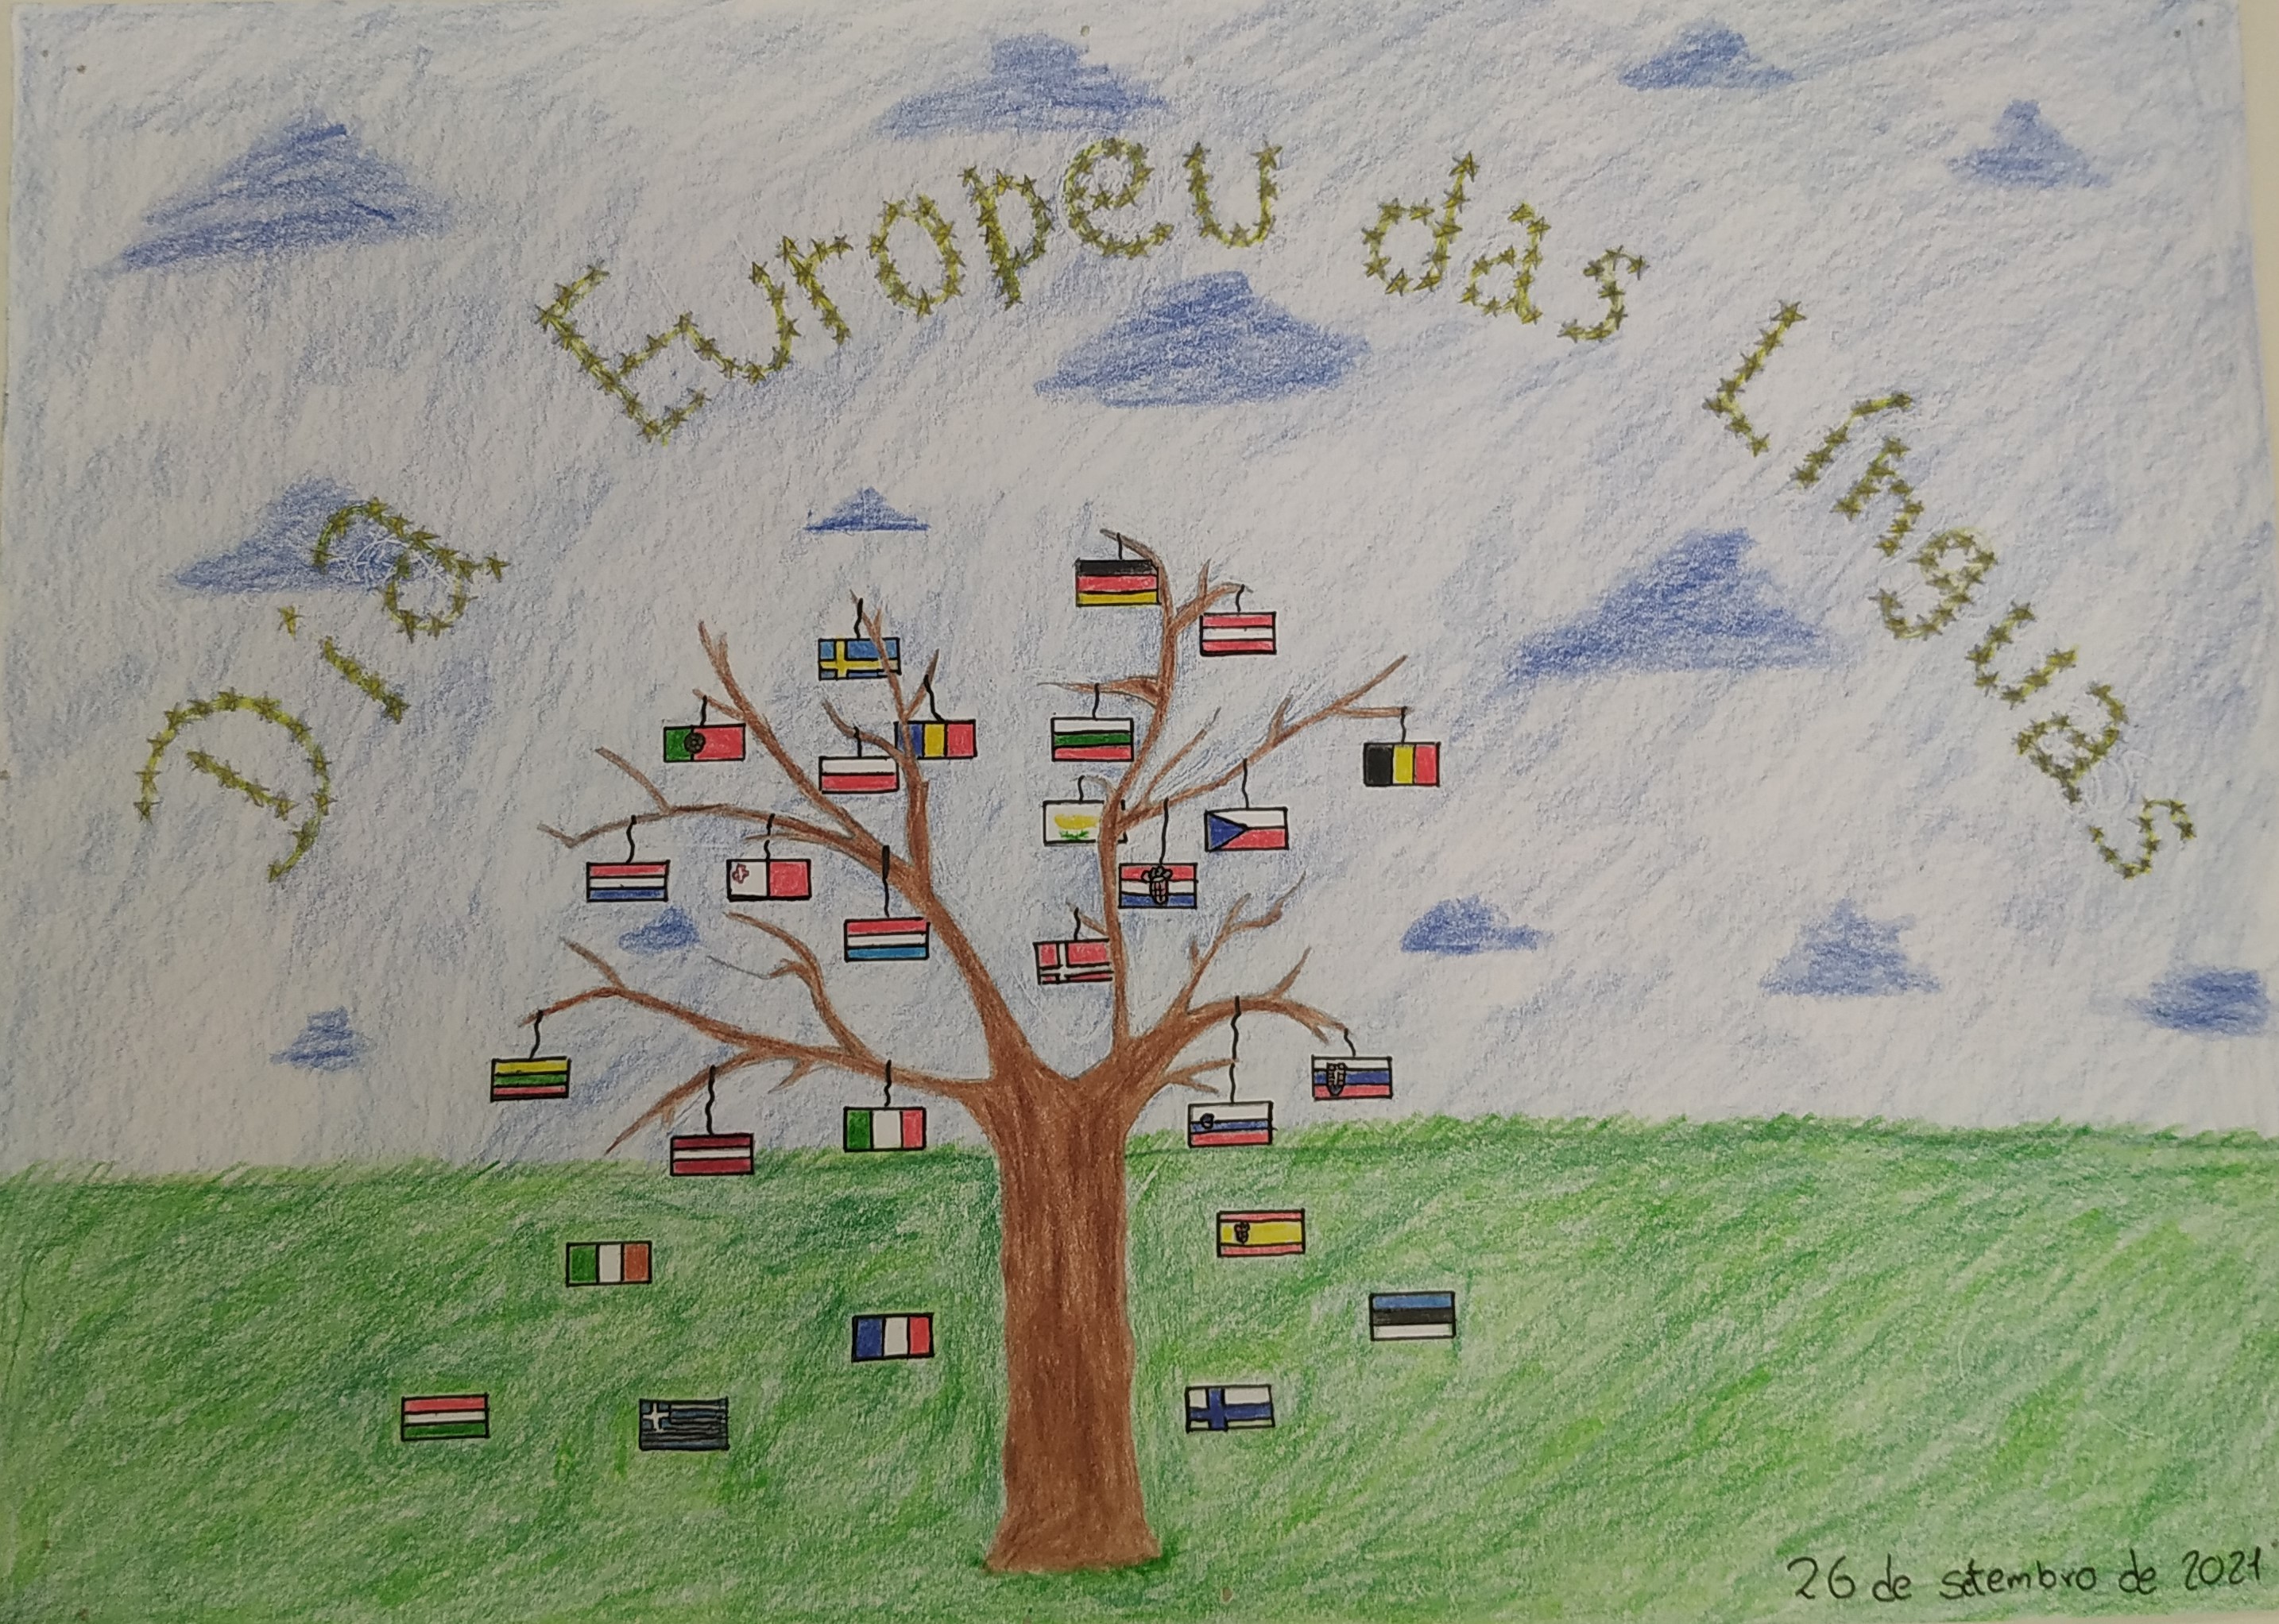 Dia Europeu das Línguas
26 de setembro de 2021